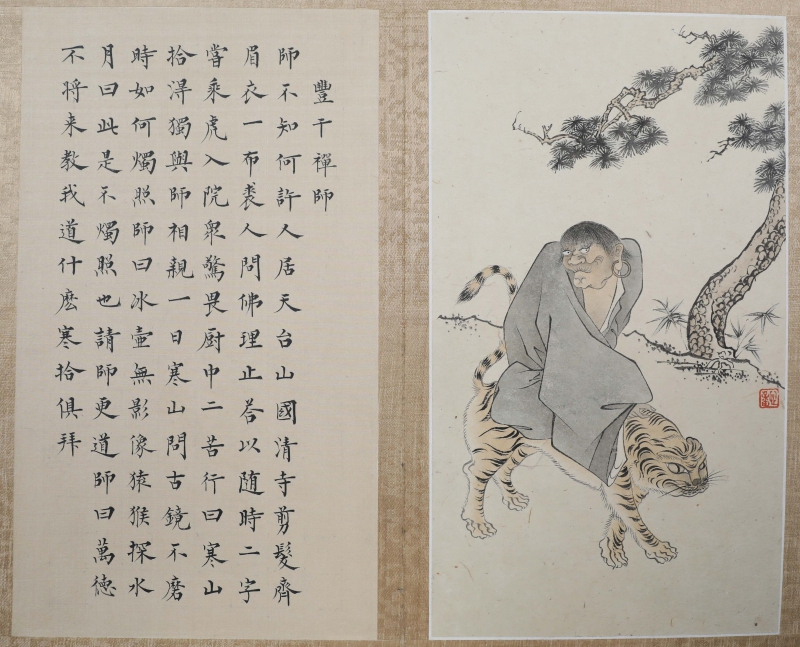 豐干禪師
師不知何許人居天台山國清寺剪髮齊
眉衣一布裘人問佛理止荅以随時二字
嘗乘虎入院衆驚畏厨中二苦行曰寒山
拾淂獨與師相親一日寒山問古鏡不磨
時如何燭照師曰冰壷無影像猿猴探水
月曰此是不燭照也請師更道師曰萬徳
不将来教我道什麽寒拾俱拜